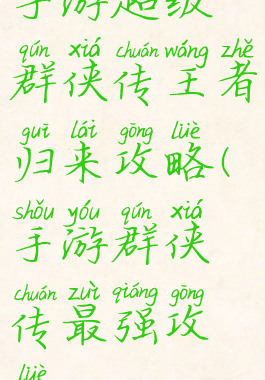 手游超级
qún xiá chuán wáng zhě
群侠传王者
guī lái gōng lüè
归来攻略(
shǒu yóu qún xiá
手游群侠
chuán zuì qiáng gōng
传最强攻
lüè